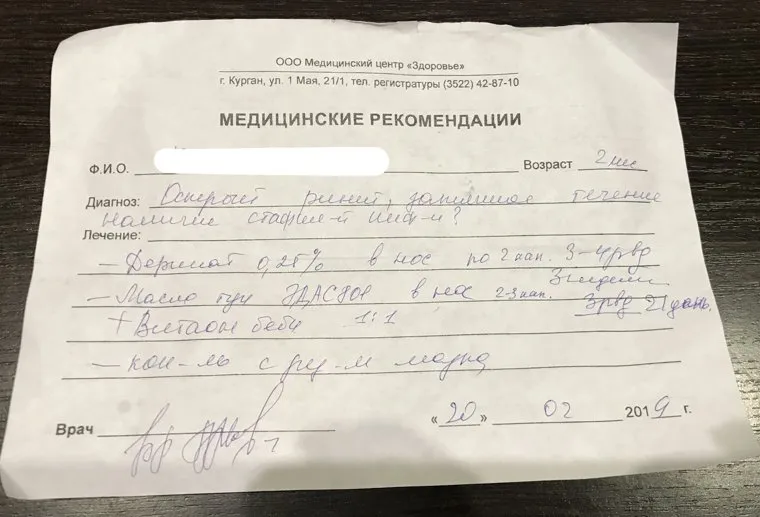 ООО Медицинский центр «Здоровье»
г. Курган, ул. 1 Мая, 21/1, тел. регистратуры (3522) 42-87-10
МЕДИЦИНСКИЕ РЕКОМЕНДАЦИИ
Ф.И.О. Возраст 2 мес
Диагноз: Острый ринит, затяжное течение
Наличие стафил-й инф-и?
Лечение:
- Деринат 0,25% в нос по 2 кап. 3-4 рвд
3 недели
- Масло туи ЭДАС801 в нос 2-3 кап. 3рвд 21 день.
+ Витаон беби 1:1
- кон-ль с рез-м мазка
Врач «20» 02 2019 г.